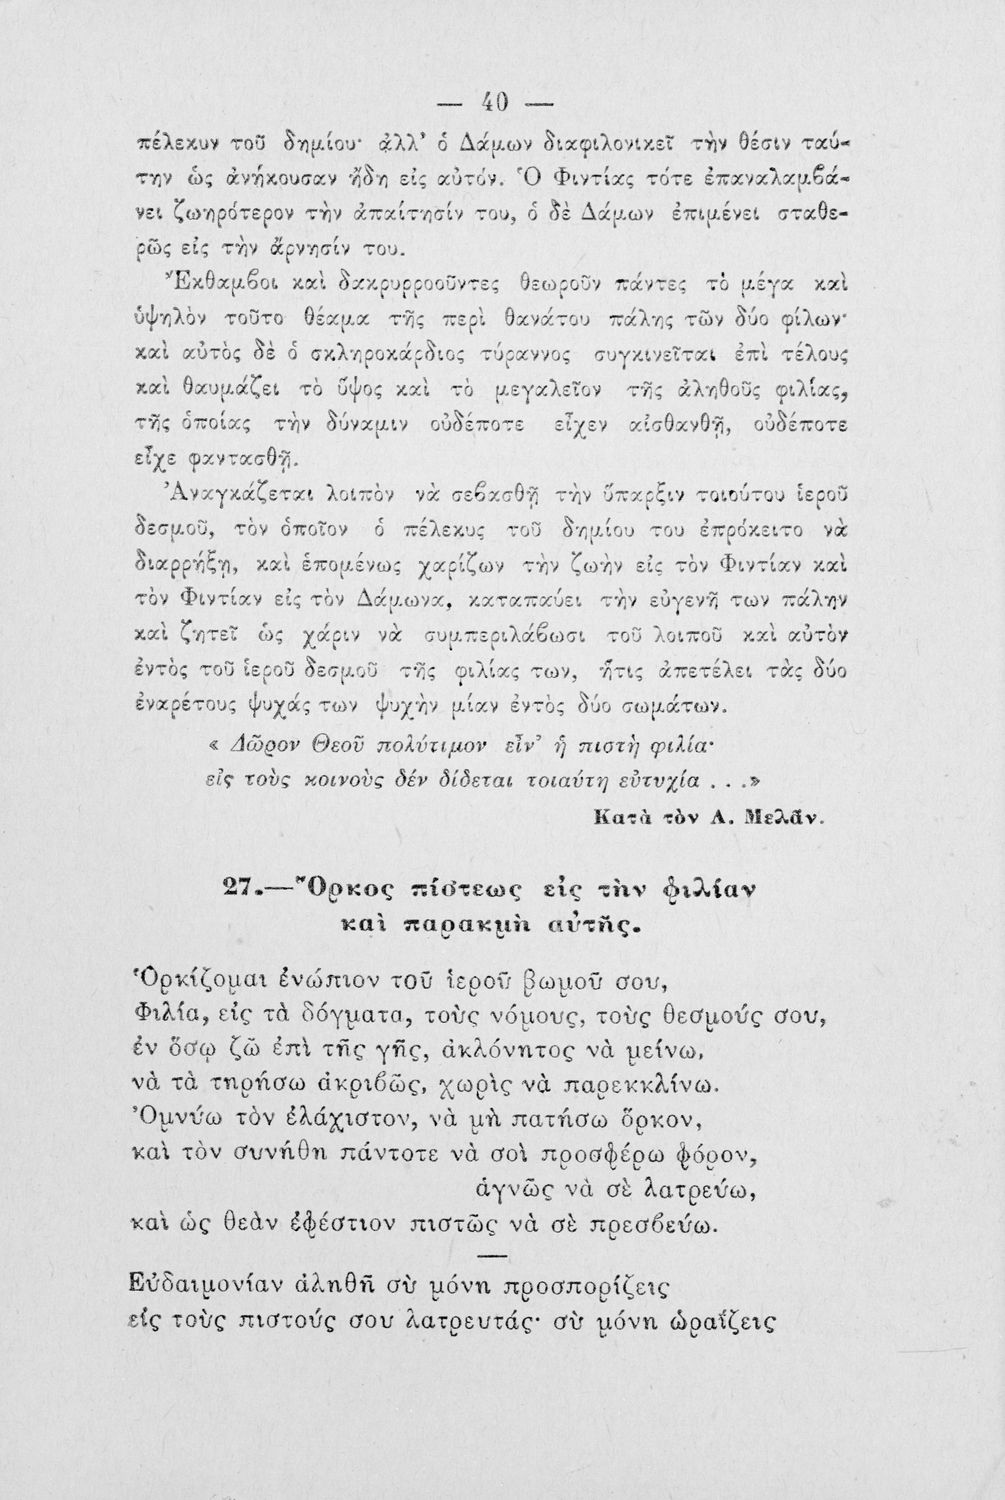 — 40 —
πέλεκυν τοῦ δημίου· ἀλλ’ ὁ Δάμων διαφιλονικεῖ τὴν θέσιν ταύ-
την ὡς ἀνήκουσαν ἤδη εἰς αὐτόν. Ὁ Φιντίας τότε ἐπαναλαμβά-
νει ζωηρότερον τὴν ἀπαίτησίν του, ὁ δὲ Δάμων ἐπιμένει σταθε-
ρῶς εἰς τὴν ἄρνησίν του.
Ἔκθαμβοι καὶ δακρυρροοῦντες θεωροῦν πάντες τὸ μέγα καὶ
ὑψηλὸν τοῦτο θέαμα τῆς περὶ θανάτου πάλης τῶν δύο φίλων·
καὶ αὐτὸς δὲ ὁ σκληροκάρδιος τύραννος συγκινεῖται ἐπὶ τέλους
καὶ θαυμάζει τὸ ὕψος καὶ τὸ μεγαλεῖον τῆς ἀληθοῦς φιλίας,
τῆς ὁποίας τὴν δύναμιν οὐδέποτε εἶχεν αἰσθανθῇ, οὐδέποτε
εἶχε φαντασθῇ.
Ἀναγκάζεται λοιπὸν νὰ σεβασθῇ τὴν ὕπαρξιν τοιούτου ἱεροῦ
δεσμοῦ, τὸν ὁποῖον ὁ πέλεκυς τοῦ δημίου του ἐπρόκειτο νὰ
διαρρήξῃ, καὶ ἑπομένως χαρίζων τὴν ζωὴν εἰς τὸν Φιντίαν καὶ
τὸν Φιντίαν εἰς τὸν Δάμωνα, καταπαύει τὴν εὐγενῆ των πάλην
καὶ ζητεῖ ὡς χάριν νὰ συμπεριλάβωσι τοῦ λοιποῦ καὶ αὐτὸν
ἐντὸς τοῦ ἱεροῦ δεσμοῦ τῆς φιλίας των, ἥτις ἀπετέλει τὰς δύο
ἐναρέτους ψυχάς των ψυχὴν μίαν ἐντὸς δύο σωμάτων.
« Δῶρον Θεοῦ πολύτιμον εἶν’ ἡ πιστὴ φιλία·
εἰς τοὺς κοινοὺς δέν δίδεται τοιαύτη εὐτυχία . . .»
Κατὰ τὸν Α. Μελᾶν.
27.—Ὅρκος πίστεως εἰς τὴν φιλίαν
καὶ παρακμὴ αὐτῆς.
Ὁρκίζομαι ἐνώπιον τοῦ ἱεροῦ βωμοῦ σου,
Φιλία, εἰς τὰ δόγματα, τοὺς νόμους, τοὺς θεσμούς σου,
ἐν ὅσῳ ζῶ ἐπὶ τῆς γῆς, ἀκλόνητος νὰ μείνω,
νὰ τὰ τηρήσω ἀκριβῶς, χωρὶς νὰ παρεκκλίνω.
Ὀμνύω τὸν ἐλάχιστον, νὰ μὴ πατήσω ὅρκον,
καὶ τὸν συνήθη πάντοτε νὰ σοὶ προσφέρω φόρον,
ἁγνῶς νὰ σὲ λατρεύω,
καὶ ὡς θεὰν ἐφέστιον πιστῶς νὰ σὲ πρεσβεύω.
—
Εὐδαιμονίαν ἀληθῆ σὺ μόνη προσπορίζεις
εἰς τοὺς πιστούς σου λατρευτάς· σὺ μόνη ὡραΐζεις